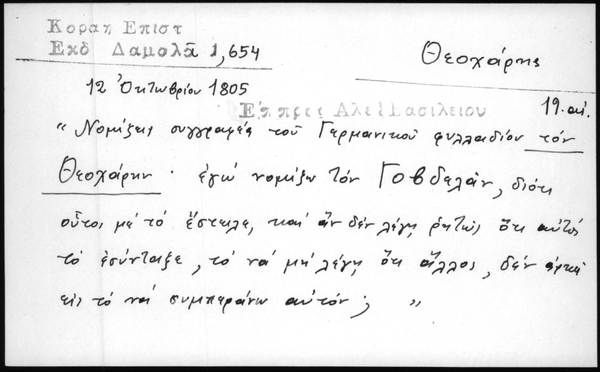 Κοραη Επιστ
Εκδ Δαμαλᾶ 1,654
Θεοχάρης
12 Ὀκτωβρίου 1805
Επ πρες Αλεξ Βασιλειου
19. αἰ.
" Νομίζεις συγγραφέα τοῦ Γερμανικοῦ φυλλαδίου τόν
Θεοχάρην · ἐγώ νομίζω τόν Γοβδελᾶν, διότι
οὗτος μέ τό ἔστειλε, καί ἄν δέν λέγῃ ῥητῶς ὅτι αὐτός
τό ἐσύνταξε, τό νά μή λέγῃ ὅτι ἄλλος, δέν ἀρκεῖ
εἰς τό νά συμπεράνω αὐτόν; "